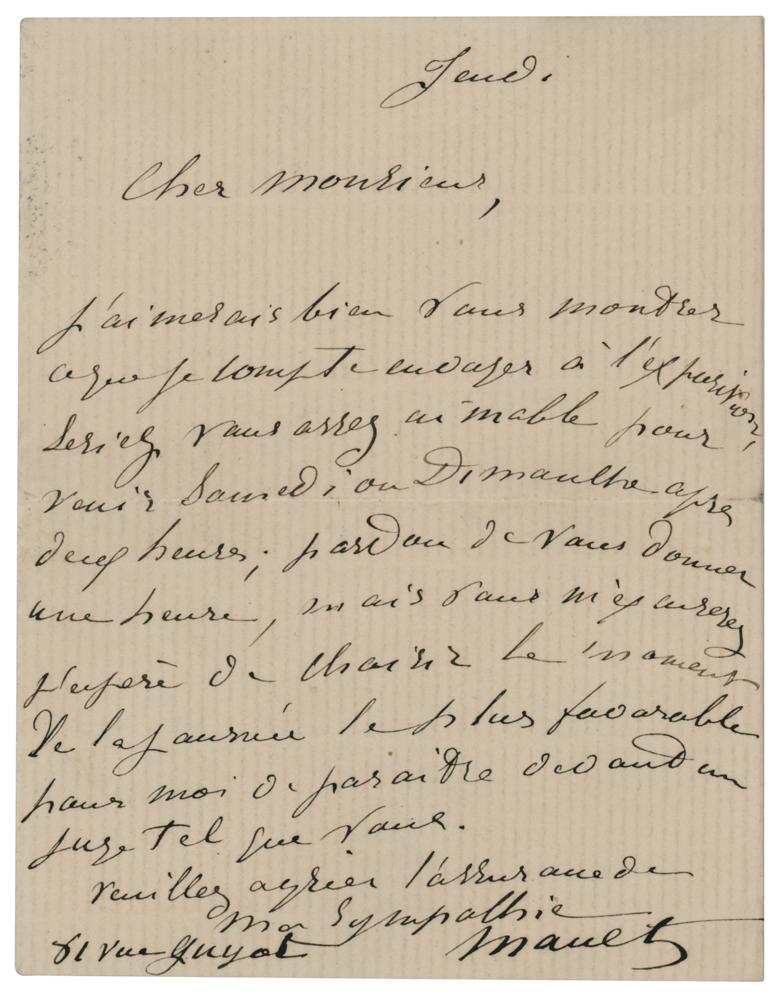 Jeudi
Cher monsieur,
j'aimerais bien vous montrer
ce que je compte envoyer à l'exposition,
seriez vous assez aimable pour
venir Samedi ou Dimanche après
deux heures; pardon de vous donner
une heure, mais vous m'excuserez
j'espère de choisir le moment
de la journée le plus favorable
pour moi de paraître devant un
juge tel que vous.
veuillez agréer l'assurance de
ma sympathie
Manet
81 rue Guyot